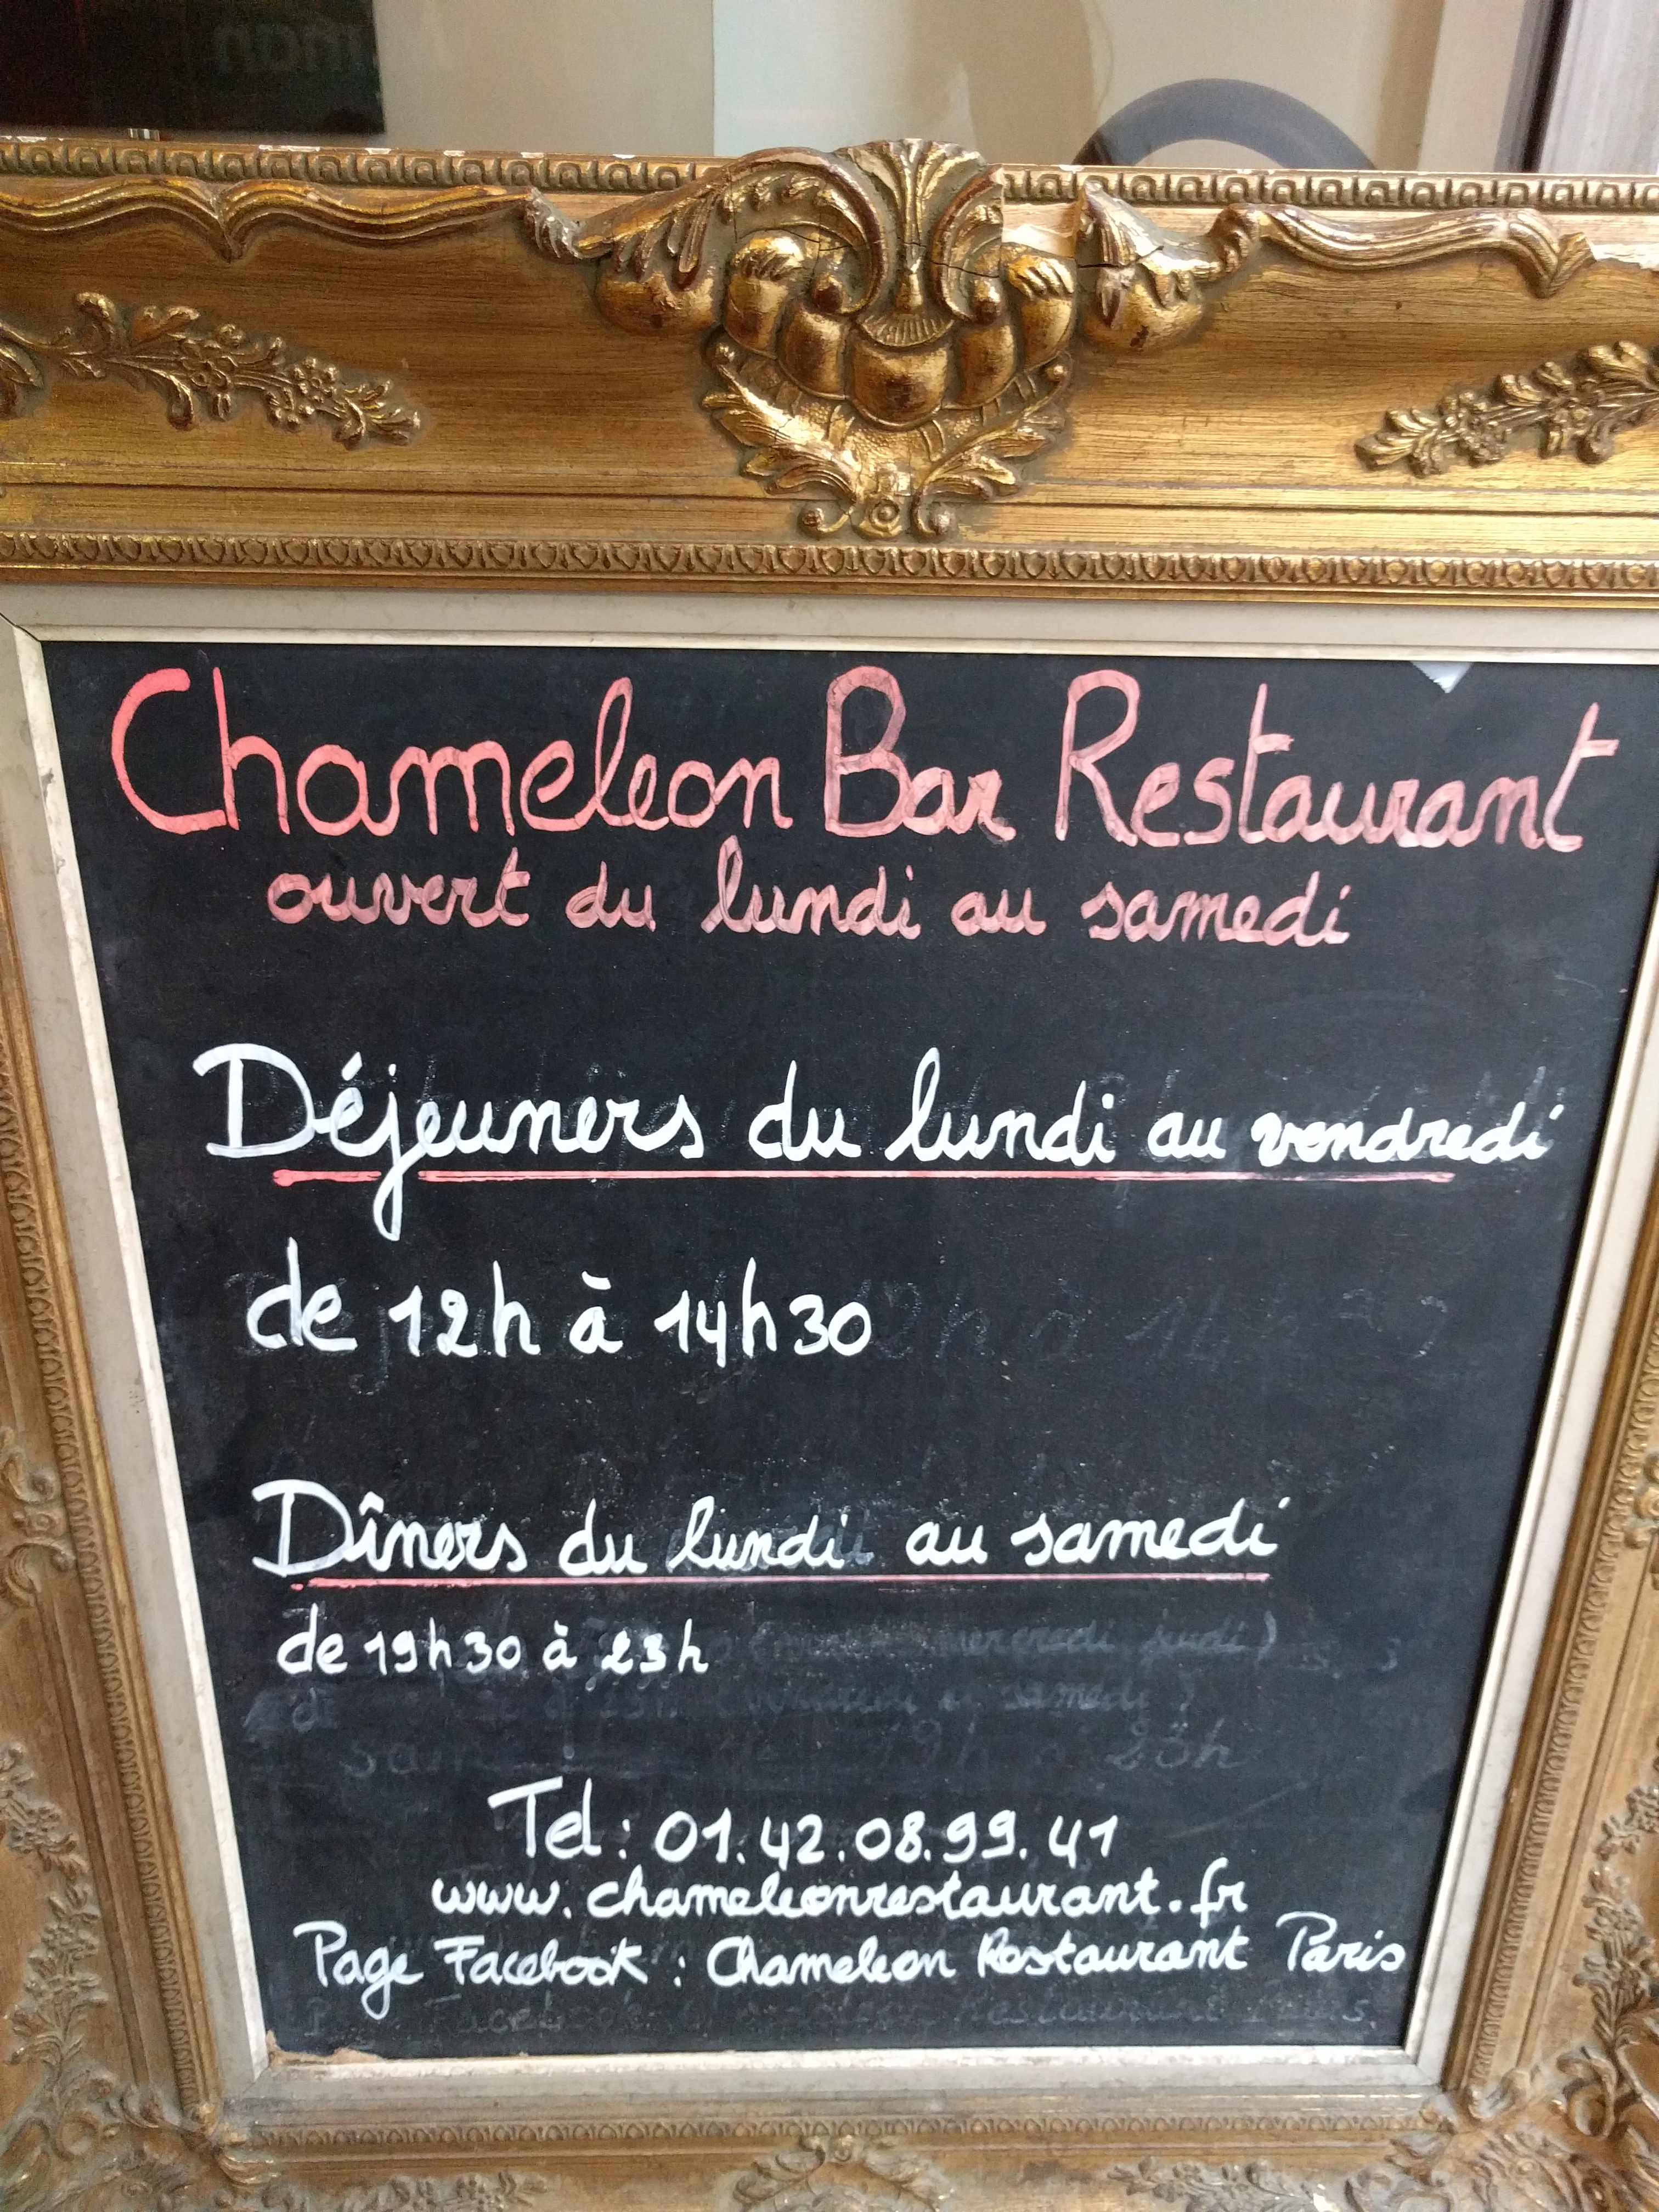 Chameleon Bar Restaurant
ouvert du lundi au samedi
Déjeuners du lundi au vendredi
de 12h à 14h30
Dîners du lundi au samedi
de 19h30 à 23h
Tel: 01.42.08.99.41
www.chameleonrestaurant.fr
Page Facebook : Chameleon Restaurant Paris